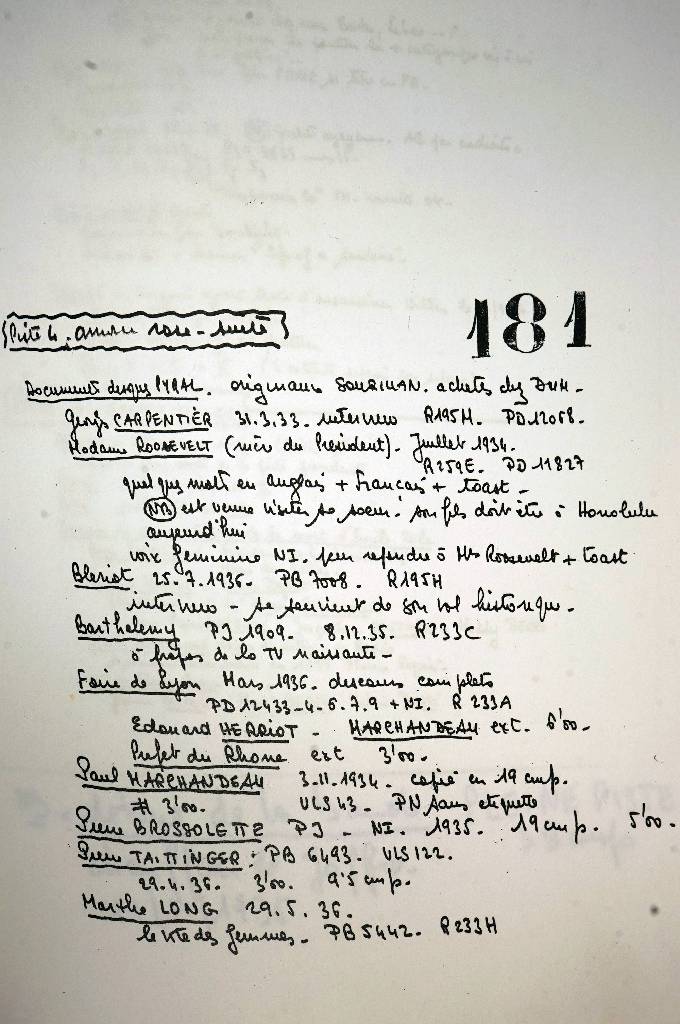 181
Piste 4. amorce rose - suite
Documents disques PYRAL. originaux SOURIMAN. achetés chez DUH -
Georges CARPENTIER 31.3.33. interview R195H. PD12058.
Madame ROOSEVELT (mère du Président). Juillet 1934.
R259E. PD 11827
quelques mots en anglais + Français + toast -
(NB) est venue visiter sa soeur. son fils doit être à Honolulu
aujourd'hui
voix féminine NI. pour répondre à Me Roosevelt + toast
Blériot 25.7.1936. PB 7008. R195H
interview - se souvient de son vol historique.
Barthelemy PJ 1909. 8.12.35. R233C
à propos de la TV naissante -
Foire de Lyon Mars 1936. discours complets
PD 12433-4-6.7.9 + NI. R 233A
Edouard HERRIOT - MARCHANDEAU ext. 6'00 -
Préfet du Rhone ext 3'00 -
Paul MARCHANDEAU 3.11.1934. copié en 19 cm p.
# 3'00. ULS 43. PN sans etiquette
Pierre BROSSOLETTE PJ - NI. 1935. 19 cm p. 5'00.
Pierre TAITTINGER : PB 6493. ULS 122.
29.4.36. 3'00. 9'5 cm p.
Marthe LONG 29.5.36.
le vote des femmes - PB 5442. R233H